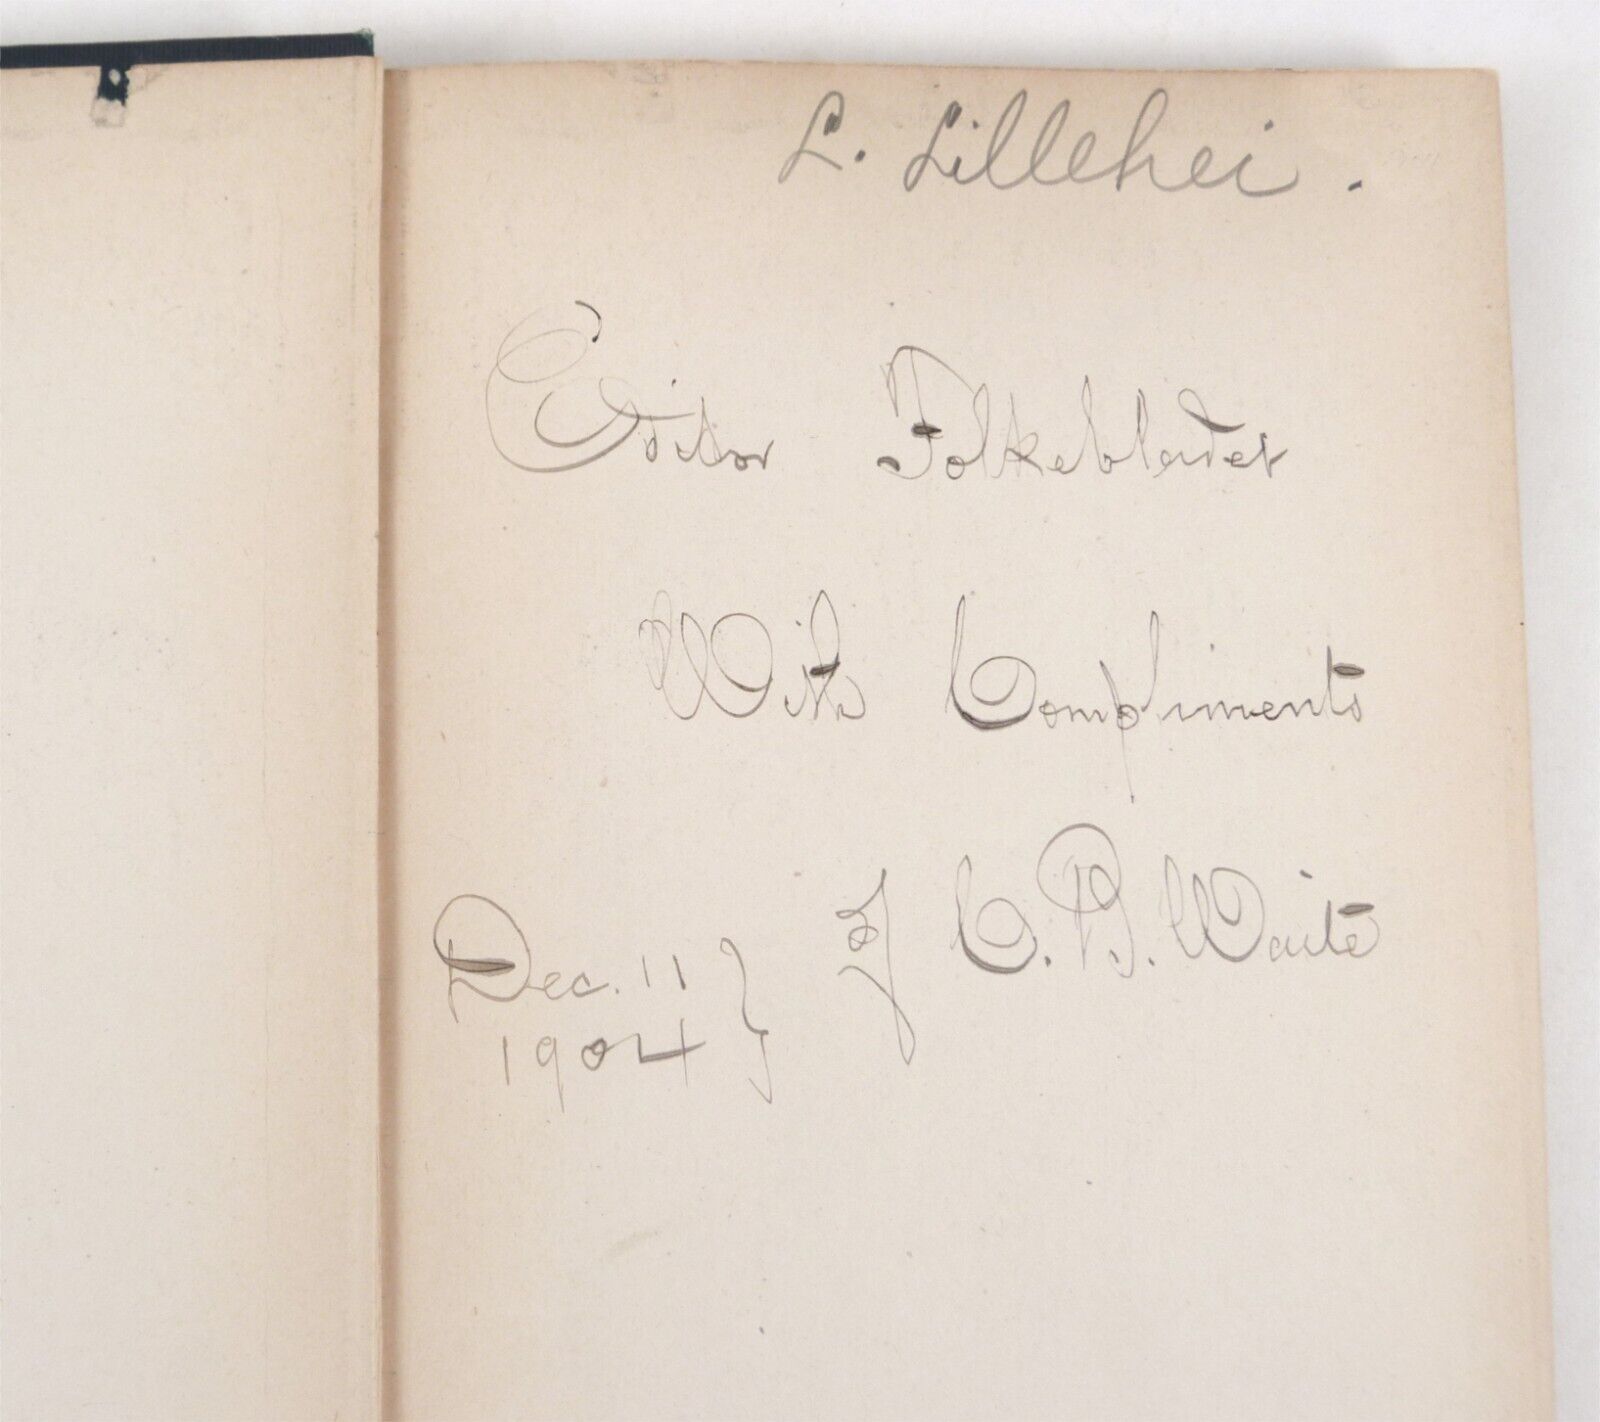 L. Lillehei.
Editor Folkebladet
With Compliments
of C. B. Waite
Dec. 11 }
1904